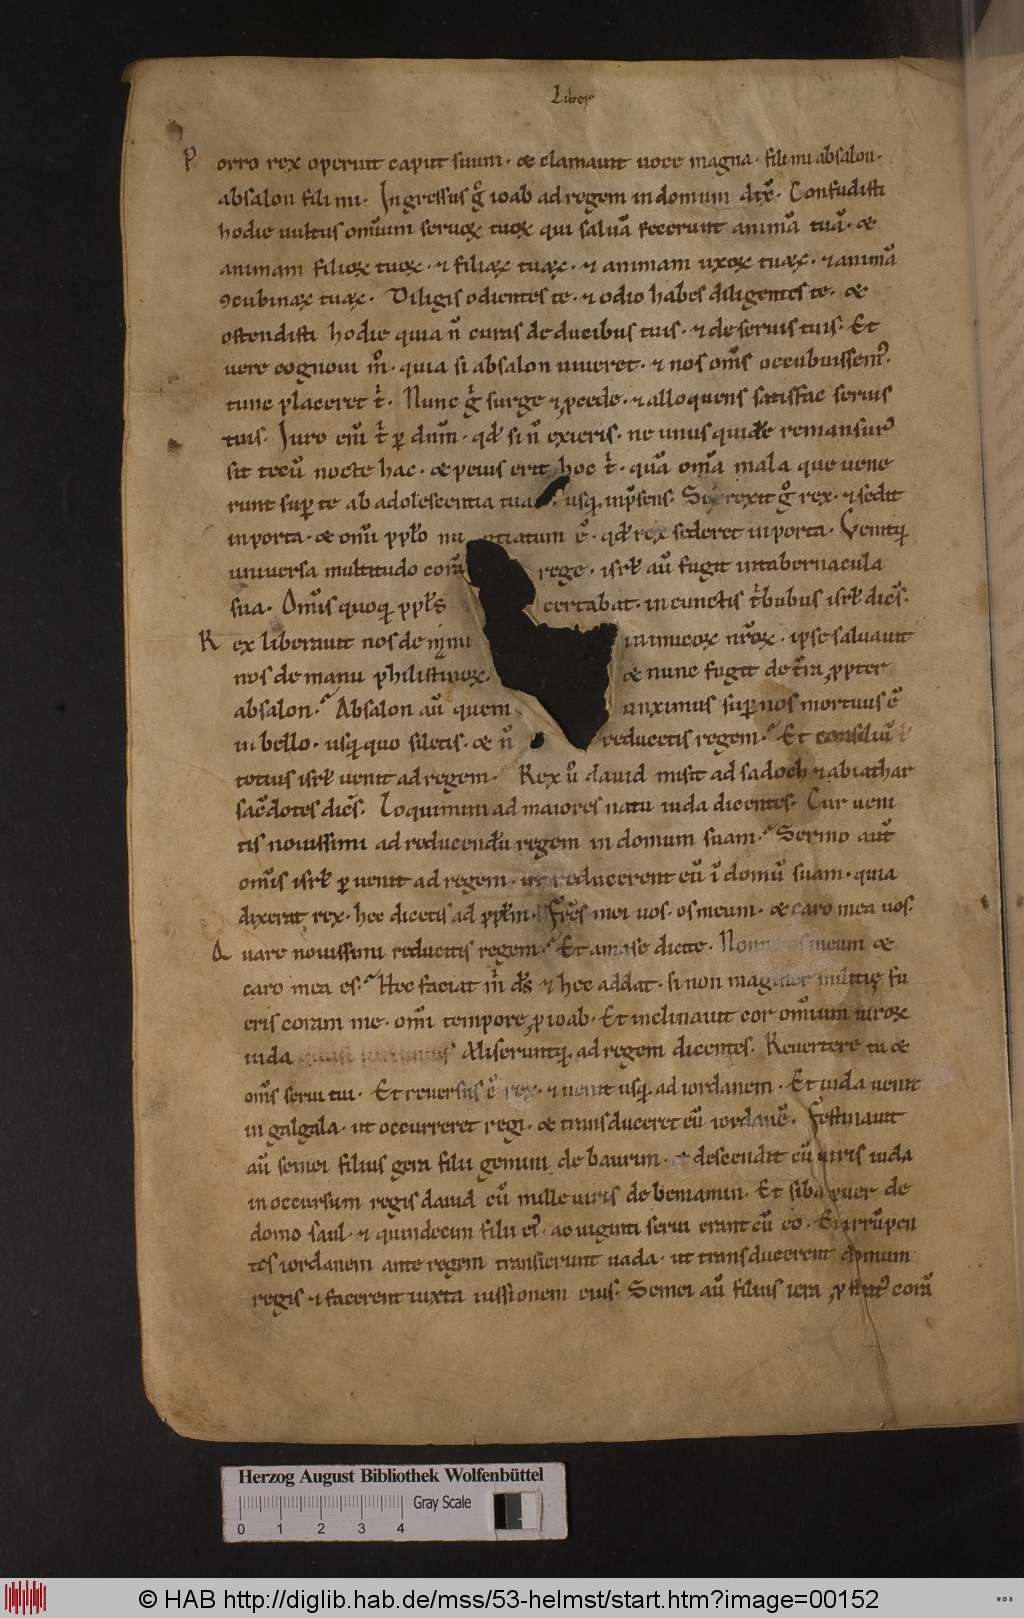 Liber
Porro rex operuit caput suum · & clamauit uoce magna · fili mi absalon ·
absalon fili mi · Ingressus g̊ ioab ad regem in domum dix̄ · Confudisti
hodie uultus om̄ium seruoꝝ tuoꝝ qui saluā fecerunt animā tuā · &
animam filioꝝ tuoꝝ · ⁊ filiaꝝ tuaꝝ · ⁊ animam uxoꝝ tuaꝝ · ⁊ animā
ꝯcubinaꝝ tuaꝝ · Diligis odientes te · ⁊ odio habes diligentes te · &
ostendisti hodie quia n̄ curas de ducibus tuis · ⁊ de seruis tuis · Et
uere cognoui m̊ · quia si absalon uiueret · ⁊ nos om̄s occubuissem᷒ ·
tunc placeret t̄ · Nunc g̊ surge ⁊ ꝓcede · ⁊ alloquens satisfac seruis
tuis · Iuro em̄ t̄ ꝑ dnm̄ · qd̄ si n̄ exieris · ne unus quidē remansur᷒
sit tecū nocte hac · & peius erit hoc t̄ · quā om̄a mala que uene
runt suꝑ te ab adolescentia tua usq; inp̄sens · Surrexit g̊ rex · ⁊ sedit
in porta · & om̄i ppl̄o nuntiatum ē · qd̄ rex sederet in porta · Venitq;
uniuersa multitudo corā rege · isrl̄ aū fugit in tabernacula
sua · Om̄is quoq; ppl̄s certabat · in cunctis t̄bubus isrl̄ dicēs ·
Rex liberauit nos de manu inimicoꝝ nr̄oꝝ · ipse saluauit
nos de manu philistinoꝝ · & nunc fugit de t̄ra ꝓpter
absalon · Absalon aū quem unximus suꝑ nos mortuus ē
in bello · usq; quo siletis · & n̄ reducitis regem · Et consiliū
totius isrl̄ uenit ad regem · Rex u̅ dauid misit ad sadoch ⁊ abiathar
sac̄dotes dicēs · Loquimini ad maiores natu iuda dicentes · Cur ueni
tis nouissimi ad reducendū regem in domum suam · Sermo aut̄
om̄is isrl̄ ꝑuenit ad regem · ut reducerent eū ī domū suam · quia
dixerat rex · hec dicetis ad ppl̄m · Fr̄es mei uos · os meum · & caro mea uos ·
Quare nouissimi reducitis regem · Et amase dicite · Nonne os meum &
caro mea es · Hec faciat m̄ ds̄ ⁊ hec addat · si non magister militię fu
eris coram me · om̄i tempore ꝓ ioab · Et inclinauit cor om̄ium uiroꝝ
iuda quasi uiri unius Miseruntq; ad regem dicentes · Reuertere tu &
om̄s serui tui · Et reuersus ē rex · ⁊ uenit usq; ad iordanem · Et iuda uenit
in galgala · ut occurreret regi · & transduceret eū iordanē · Festinauit
aū semei filius gera filii gemini de baurim · & descendit cū uiris iuda
in occursum regis dauid cū mille uiris de beniamin · Et siba puer de
domo saul · ⁊ quindecim filii ei᷒ · ac uiginti serui erant cū eo · Et irrūpen
tes iordanem ante regem transierunt uada · ut transducerent domum
regis · ⁊ facerent iuxta iussionem eius · Semei aū filius iera ꝓstrat᷒ corā
Herzog August Bibliothek Wolfenbüttel
Gray Scale
0 1 2 3 4
© HAB http://diglib.hab.de/mss/53-helmst/start.htm?image=00152